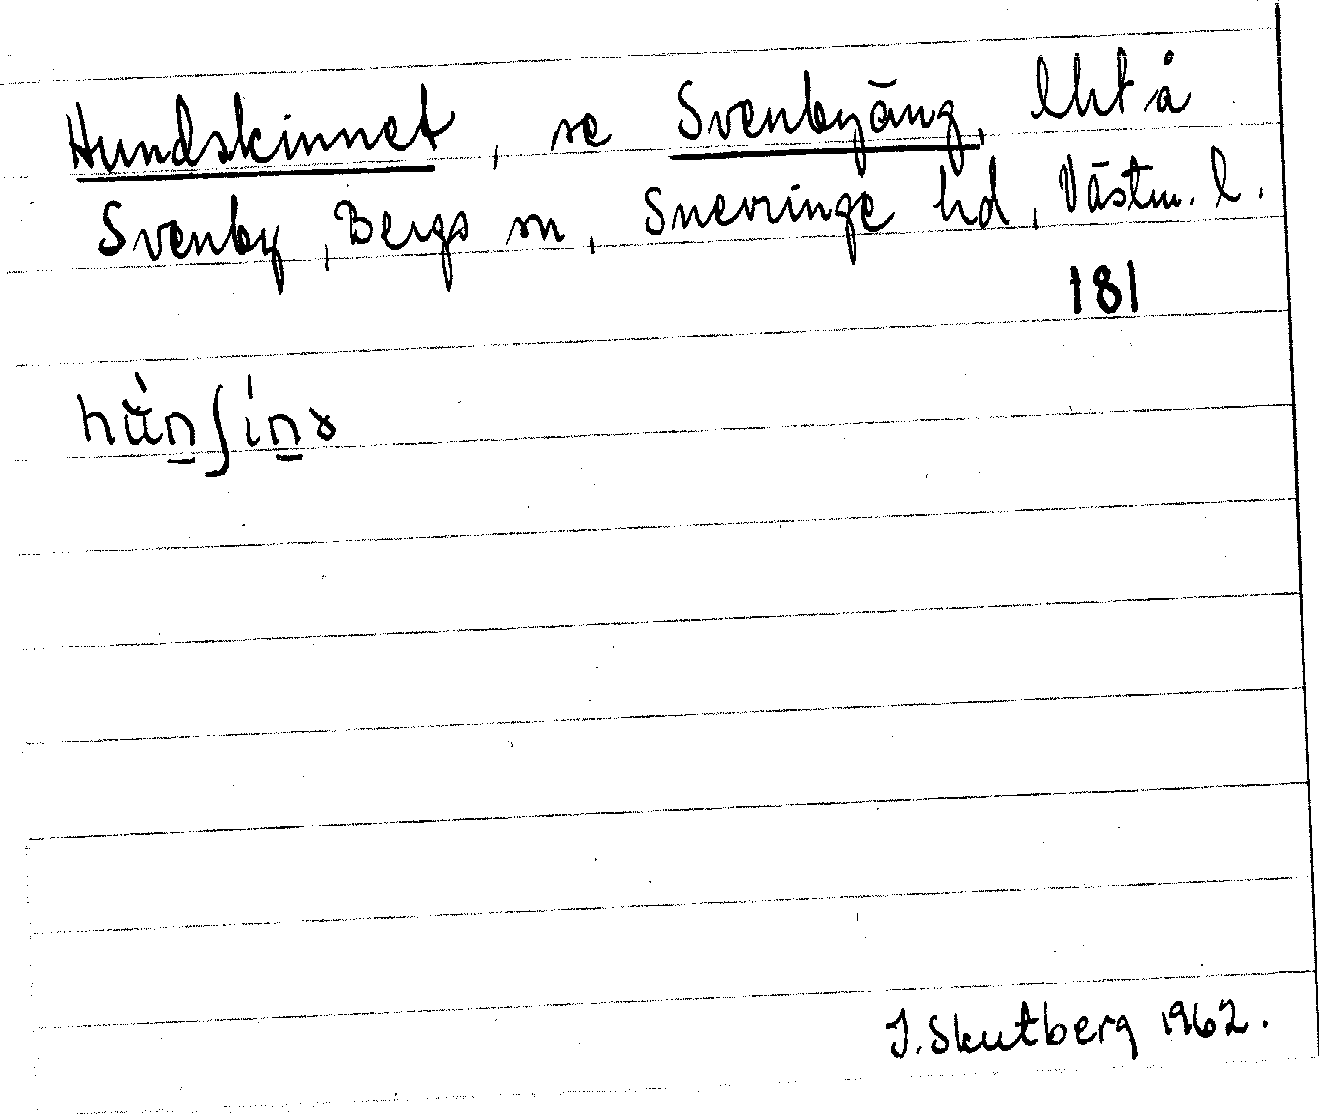 Hundskinnet, se Svenbyäng, lht å
Svenby, Bergs sn, Snevringe hd, Västm. l.
181
hùn̲ʃín̲ɤ
I. Skutberg 1962.